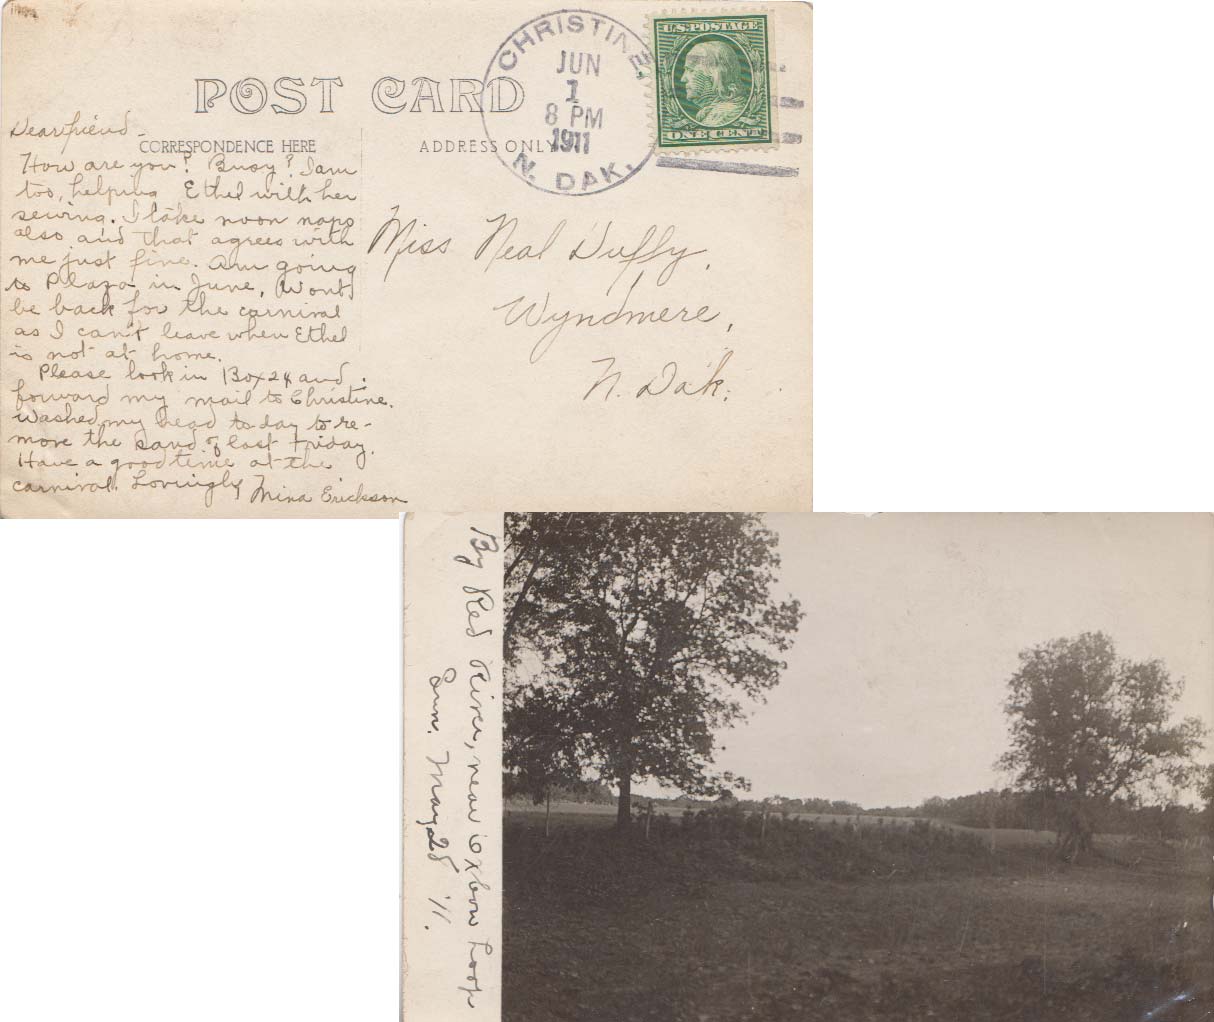 POST CARD
CORRESPONDENCE HERE
ADDRESS ONLY
CHRISTINE,
JUN
1
8 PM
1911
N. DAK.
U.S. POSTAGE
ONE CENT
Dear friend -
How are you? Busy? I am
too, helping Ethel with her
sewing. I take noon naps
also and that agrees with
me just fine. Am going
to Plaza in June. Wont
be back for the carnival
as I can't leave when Ethel
is not at home.
Please look in Box 24 and
forward my mail to Christine.
Washed my head to day to re-
move the sand of last Friday.
Have a good time at the
carnival. Lovingly Mina Erickson
Miss Neal Duffy,
Wyndmere,
N. Dak.
By Red River, near Oxbow Loop
Sun. May 28 '11.